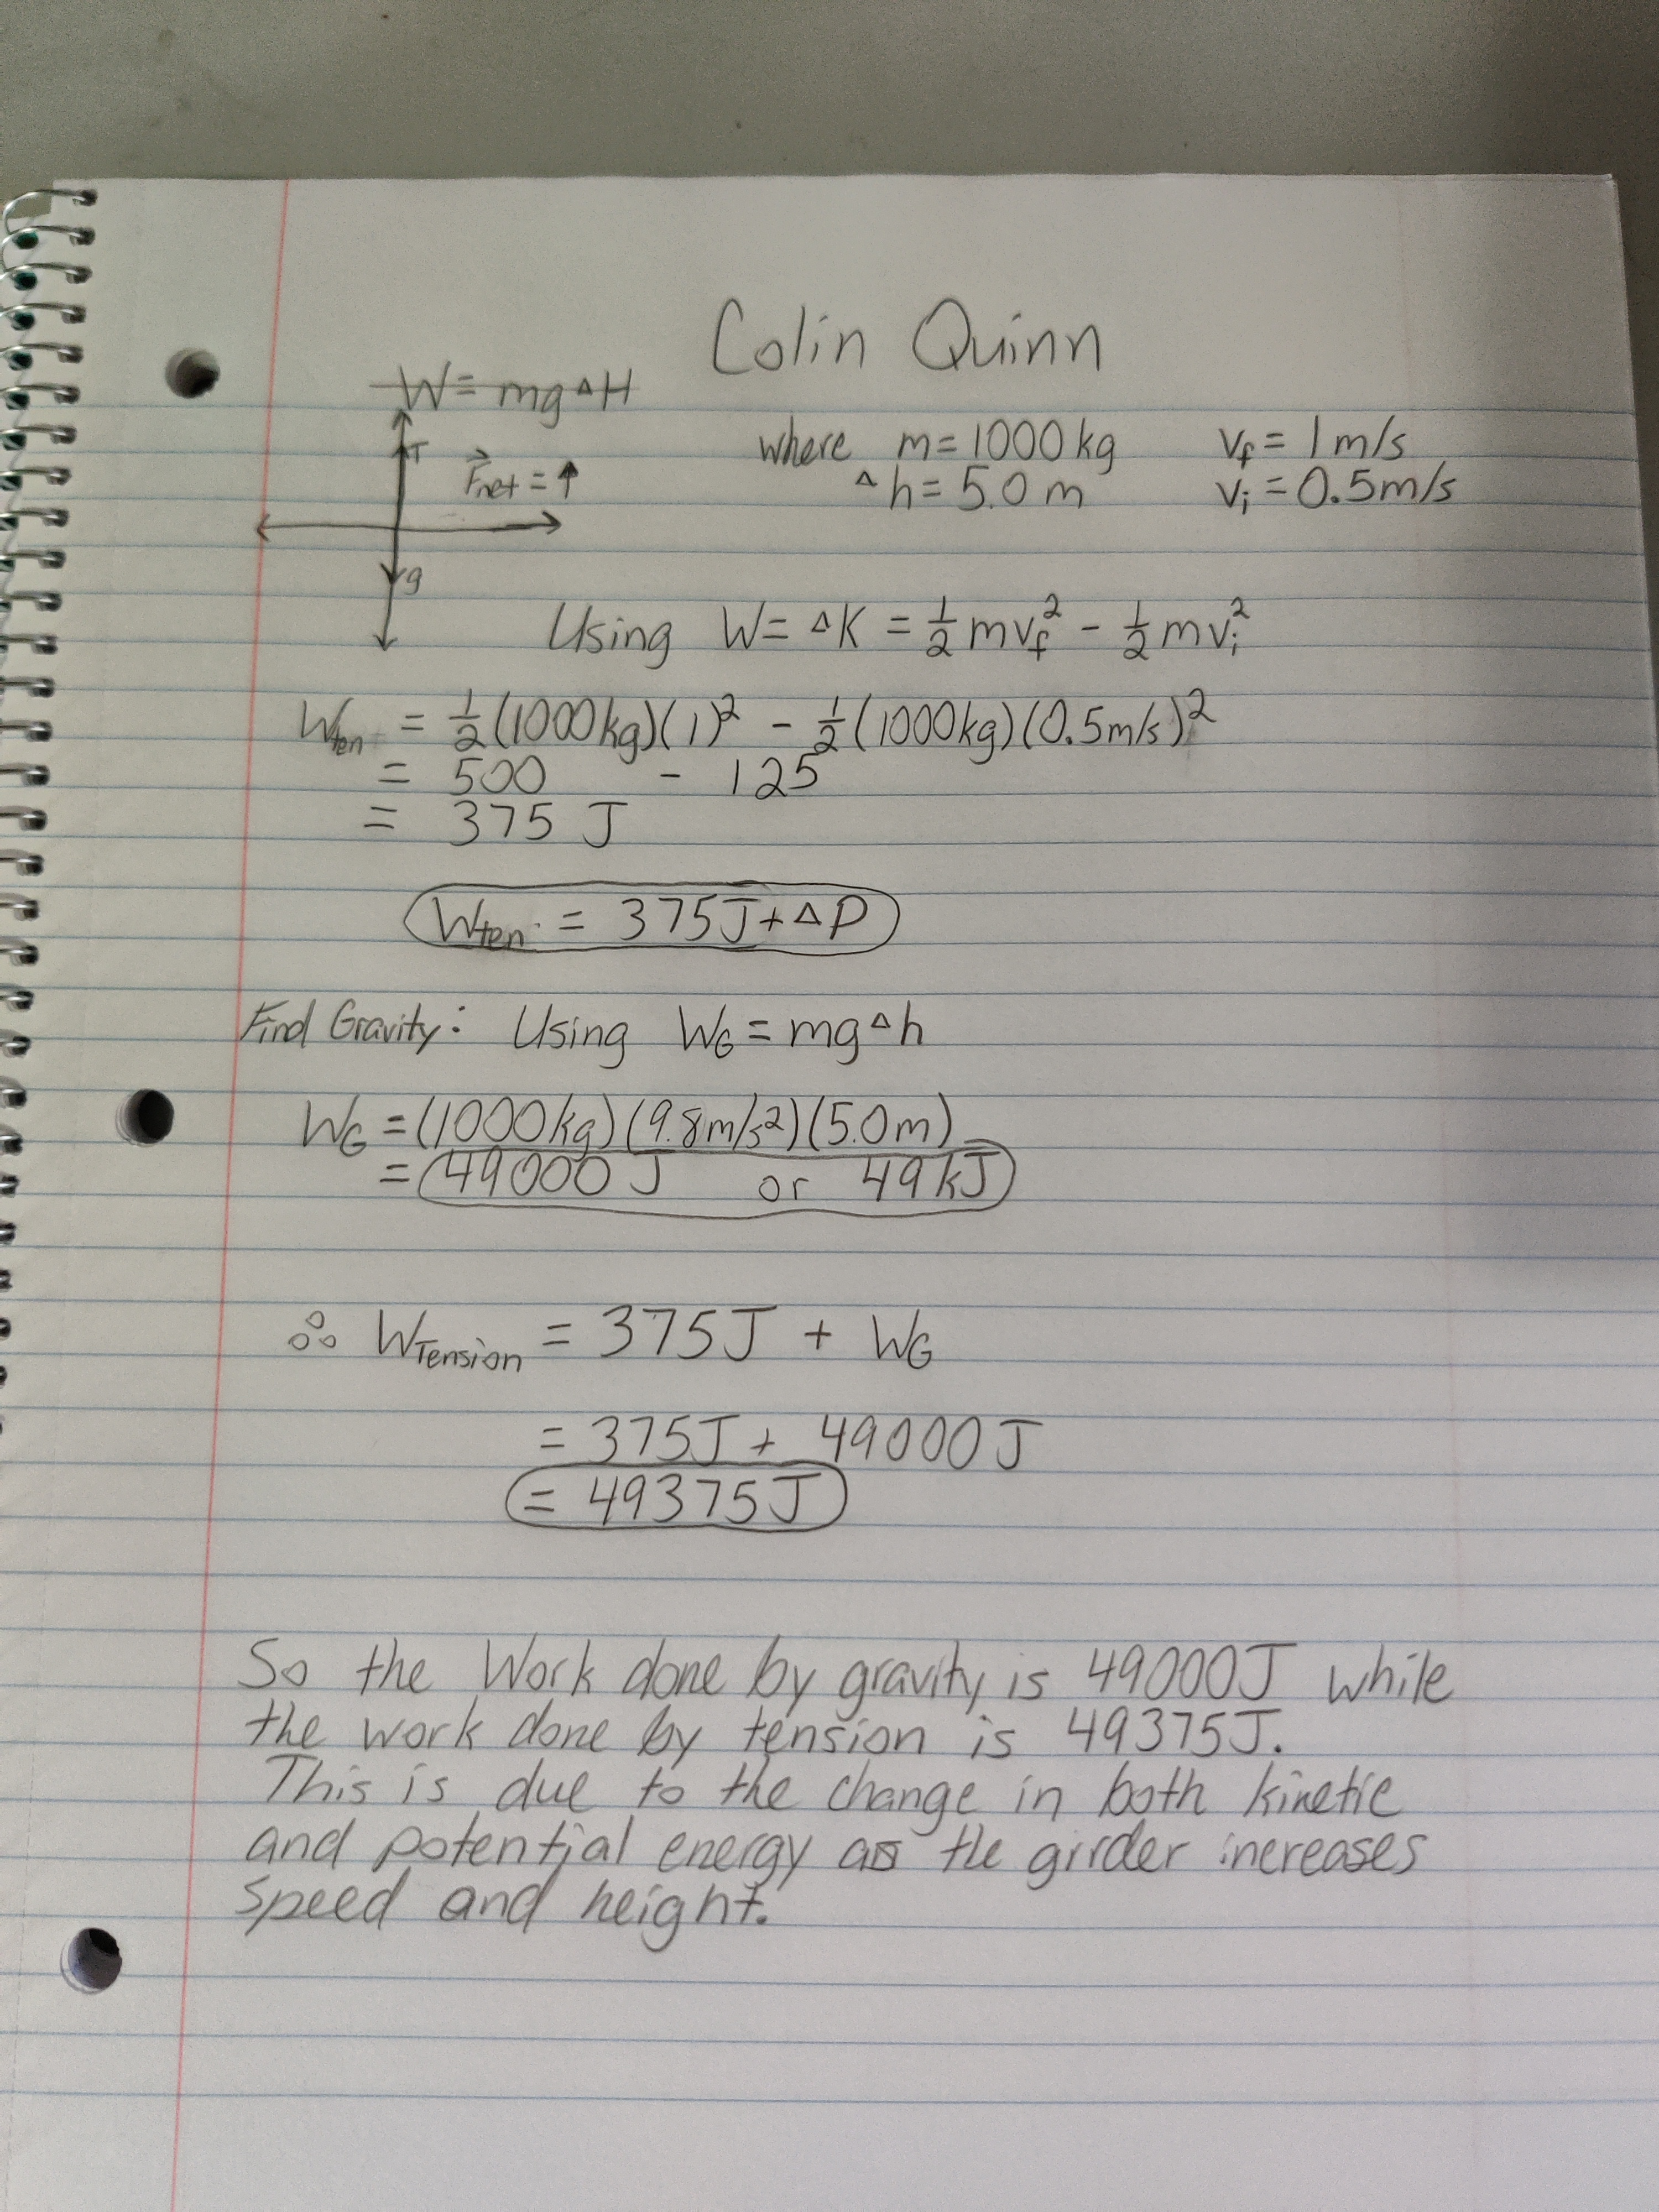 Colin Quinn
W = mgΔH
T
F⃗net = ↑
g
where m = 1000 kg vf = 1 m/s
Δh = 5.0 m vi = 0.5 m/s
Using W = ΔK = ½ mvf² - ½ mvi²
Wten = ½ (1000 kg)(1)² - ½ (1000 kg)(0.5 m/s)²
= 500 - 125
= 375 J
Wten. = 375J + ΔP
Find Gravity: Using WG = mgΔh
WG = (1000 kg)(9.8 m/s²)(5.0 m)
= 49000 J or 49 kJ
∴ WTension = 375J + WG
= 375J + 49000J
= 49375J
So the Work done by gravity is 49000J while
the work done by tension is 49375J.
This is due to the change in both kinetic
and potential energy as the girder increases
speed and height.